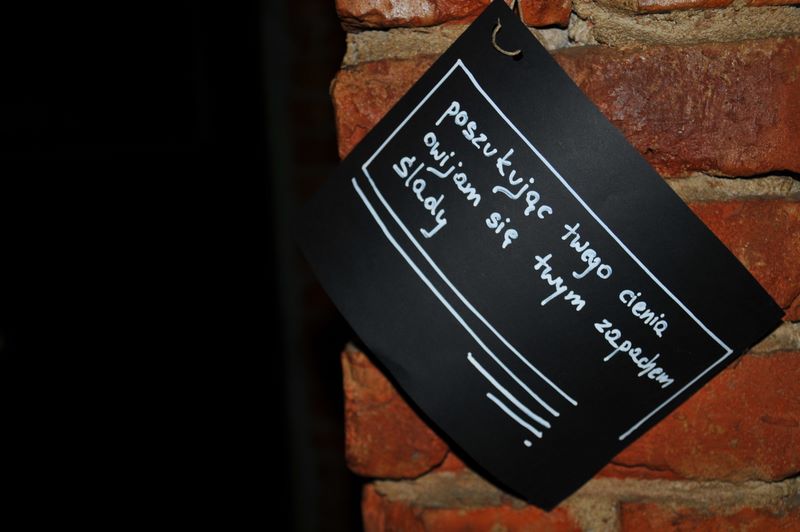 poszukując twego cienia
owijam się twym zapachem
ślady